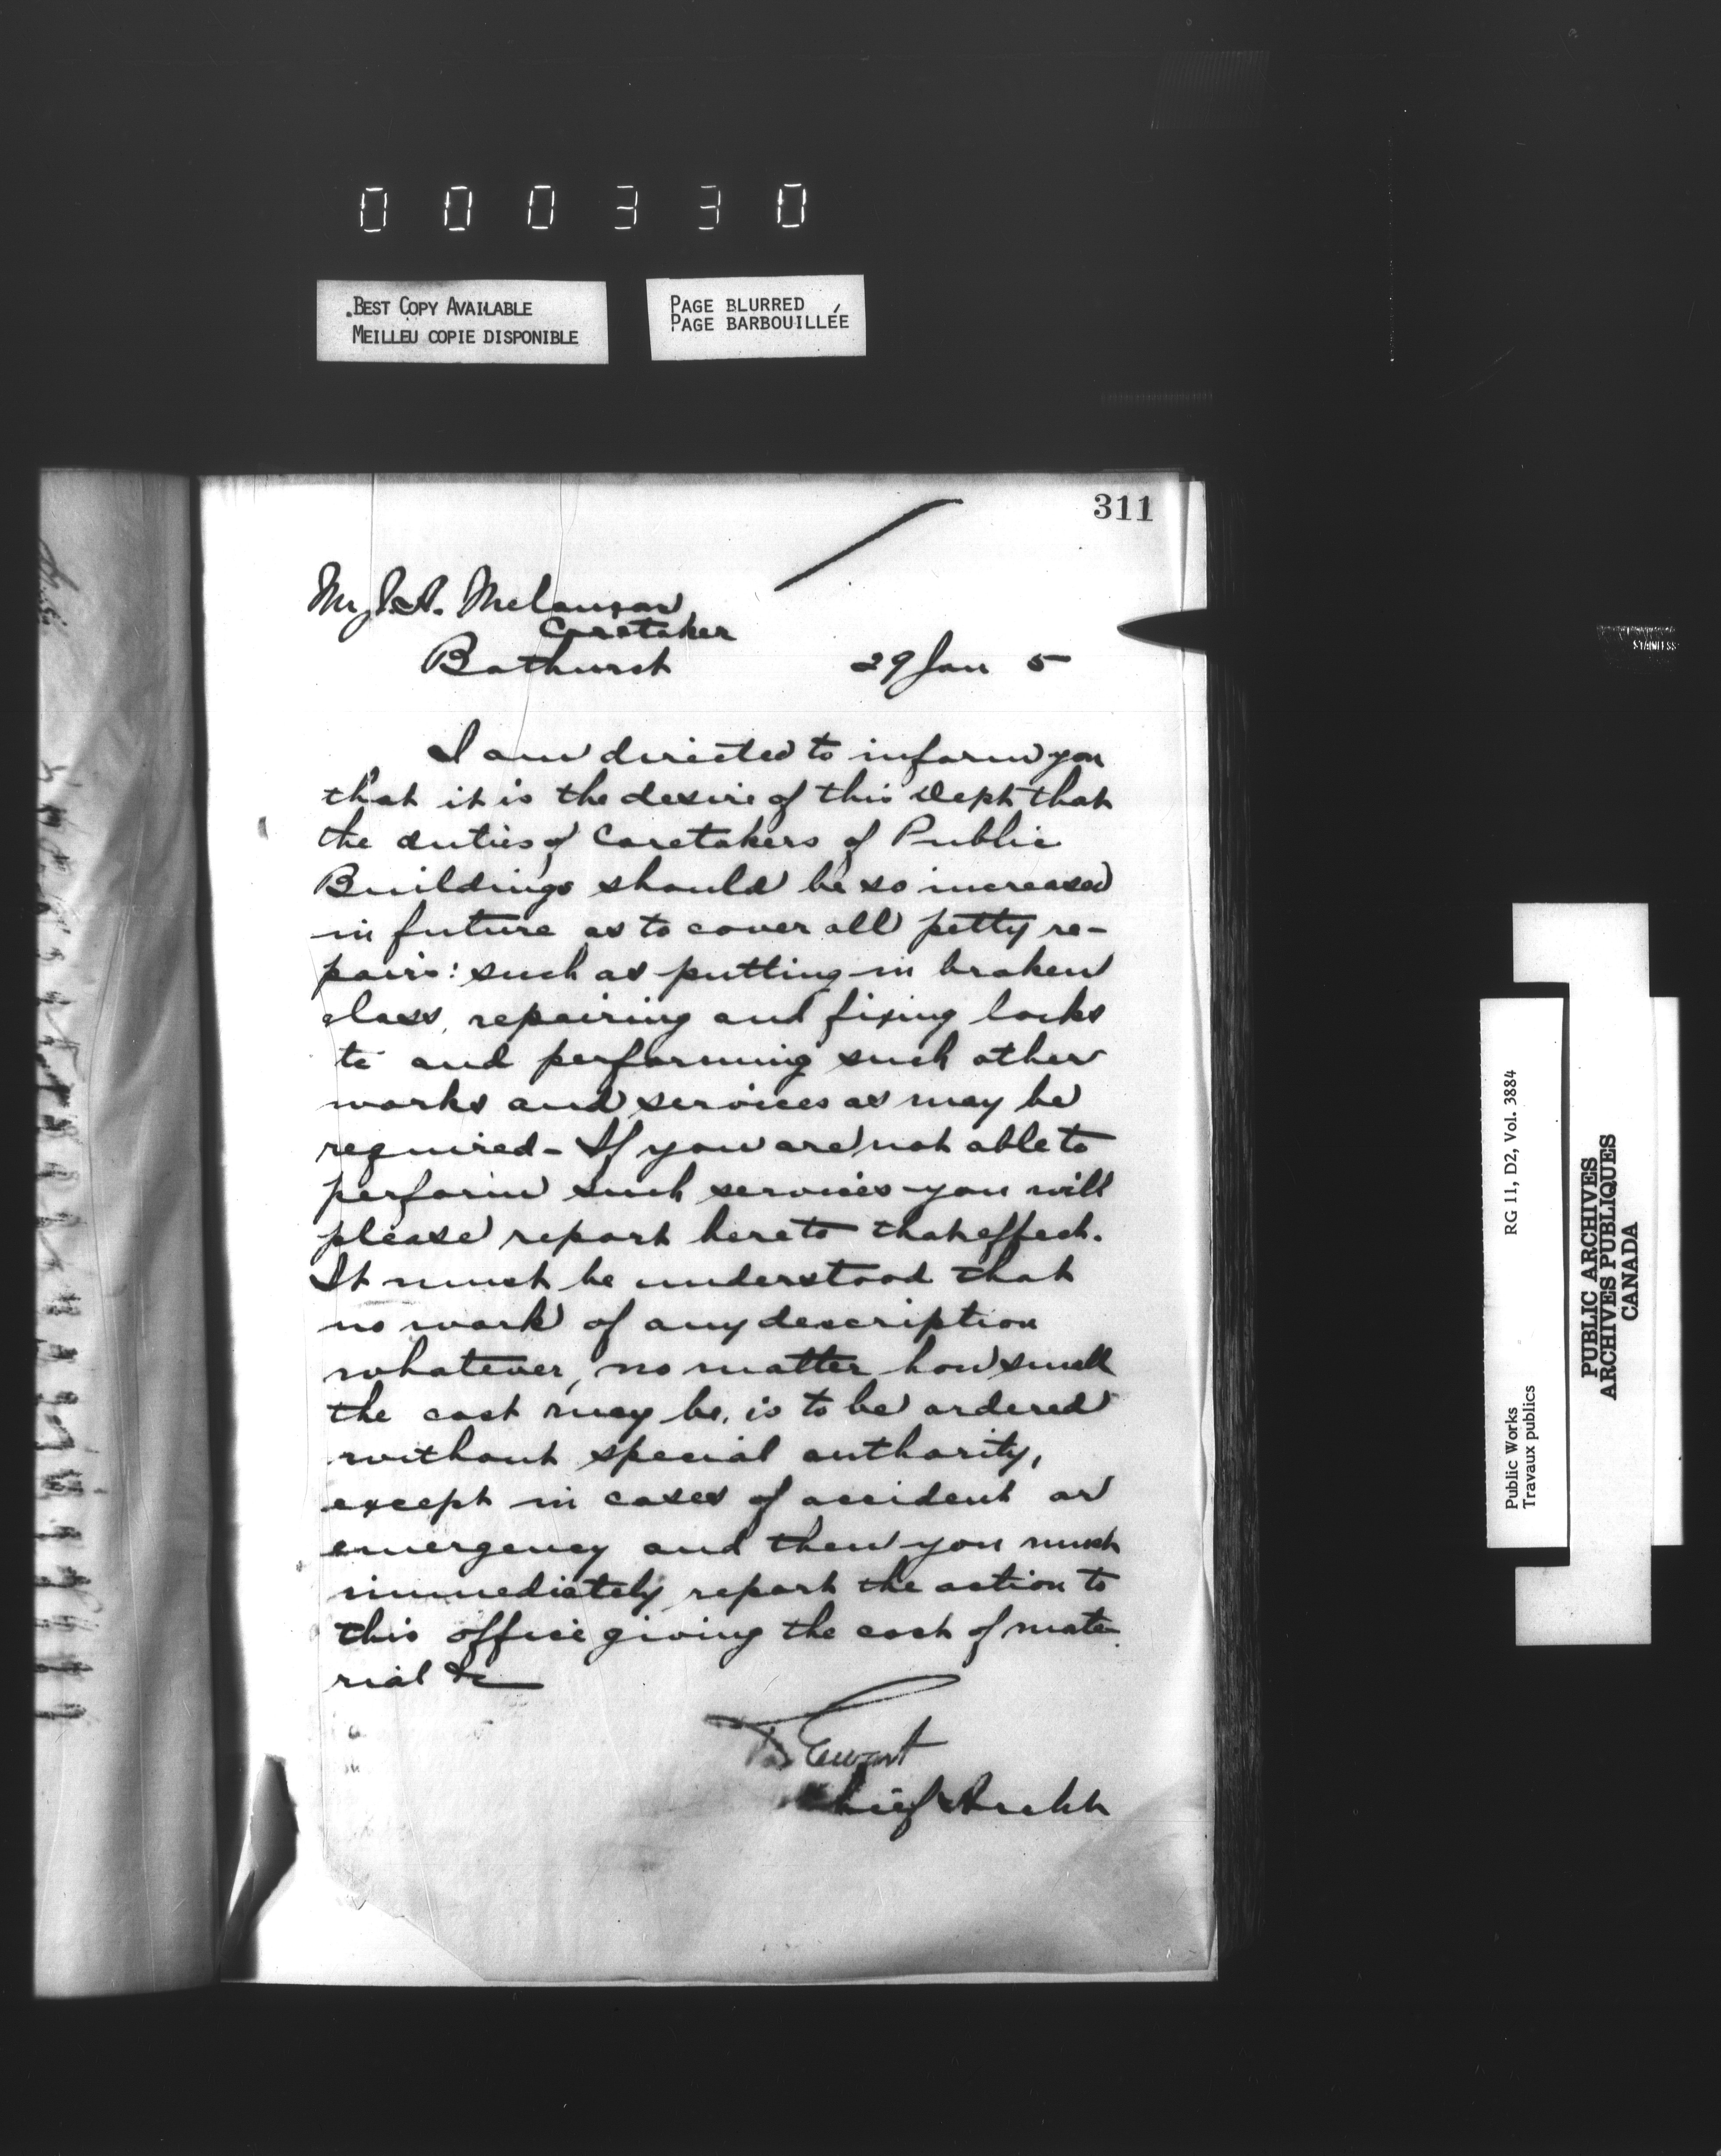 000330
BEST COPY AVAILABLE
MEILLEU COPIE DISPONIBLE
PAGE BLURRED
PAGE BARBOUILLÉE
311
Mr J. A. Melanson
Caretaker
Bathurst 29 Jan 5
I am directed to inform you
that it is the desire of this Dept that
the duties of Caretakers of Public
Buildings should be so increased
in future as to cover all petty re-
pairs: such as putting in broken
glass, repairing and fixing locks
&c and performing such other
works and services as may be
required - If you are not able to
perform such services you will
please report here to that effect.
It must be understood that
no work of any description
whatever, no matter how small
the cost may be, is to be ordered
without special authority,
except in cases of accident or
emergency and then you must
immediately report the action to
this office giving the cost of mate
rial &c
D Ewart
Chief Archt
RG 11, D2, Vol. 3884
Public Works
Travaux publics
PUBLIC ARCHIVES
ARCHIVES PUBLIQUES
CANADA
STAINLESS